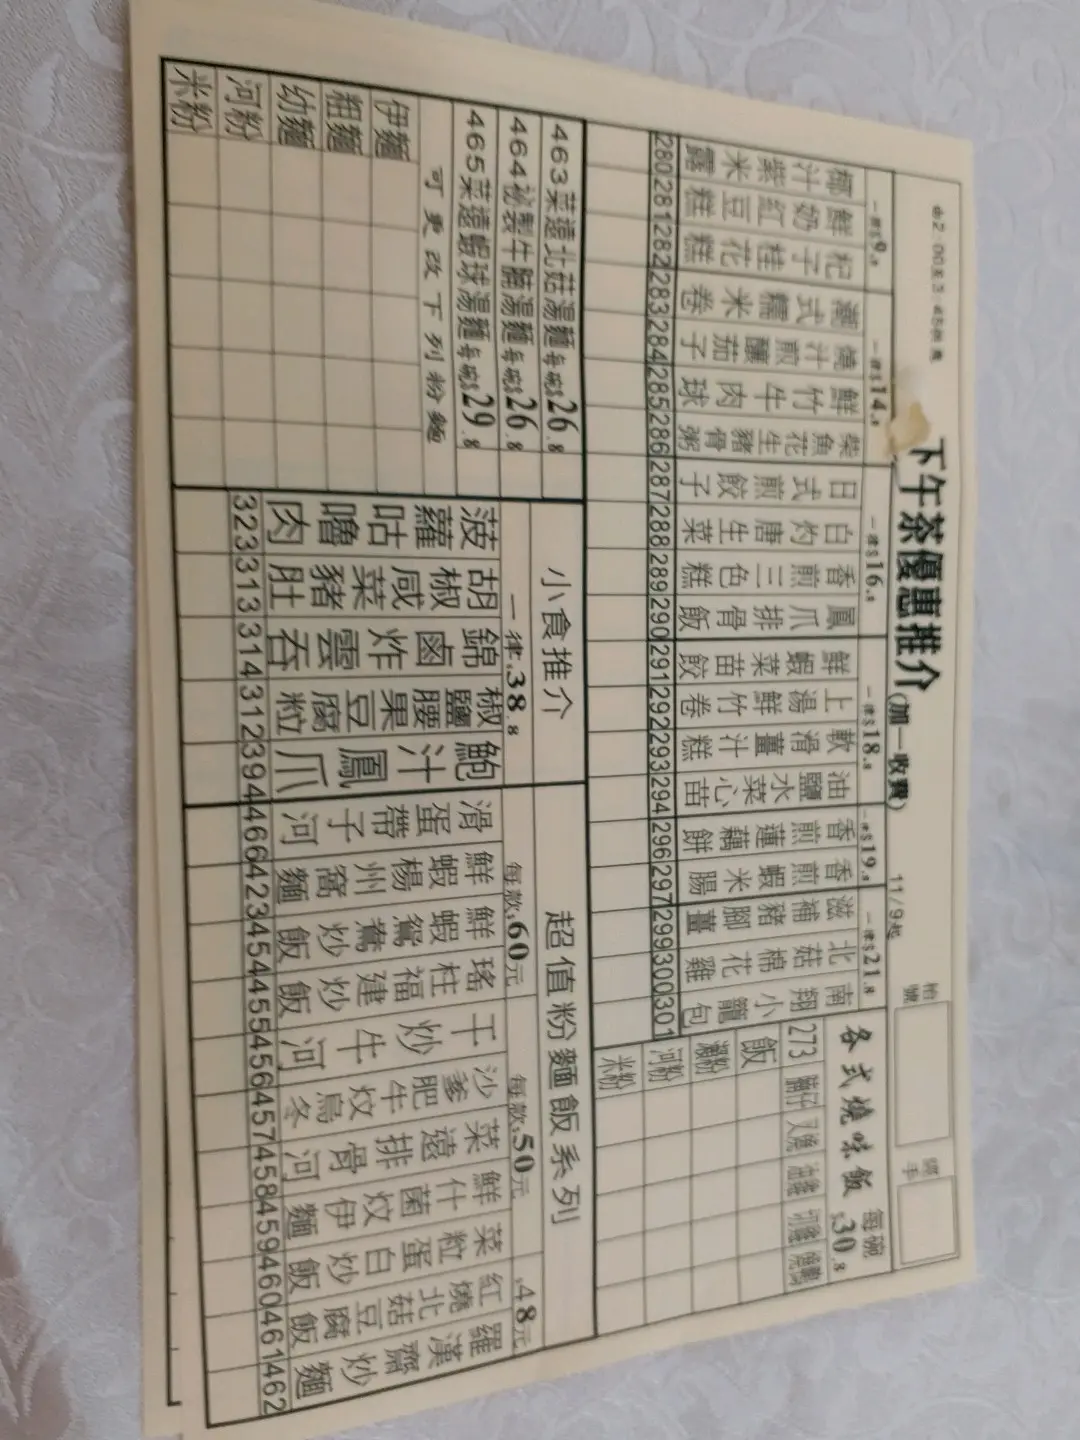 下午茶優惠推介(加一收費) 11/9起
枱號
一律$9.8
一律$14.8
一律$16.8
一律$18.8
一律$19.8
一律$21.8
椰汁紫米露 280
鮮奶紅豆糕 281
杞子桂花糕 282
潮式糯米卷 283
燒汁煎釀茄子 284
鮮竹牛肉球 285
柴魚花生豬骨粥 286
日式煎餃子 287
白灼唐生菜 288
香煎三色糕 289
鳳爪排骨飯 290
鮮蝦菜苗餃 291
上湯鮮竹卷 292
軟滑薑汁糕 293
油鹽水菜心苗 294
香煎蓮藕餅 296
香煎蝦米腸 297
滋補豬腳薑 299
北菇棉花雞 300
南翔小籠包 301
各式燒味飯 每碗$30.8
273
叉燒
油雞
切雞
飯
瀨粉
河粉
米粉
463菜遠北菇湯麵每碗$26.8
464祕製牛腩湯麵每碗$26.8
465菜遠蝦球湯麵每碗$29.8
可更改下列粉麵
伊麵
粗麵
幼麵
河粉
米粉
小食推介
一律$38.8
菠蘿咕嚕肉 323
胡椒咸菜豬肚 313
錦鹵炸雲吞 314
椒鹽腰果豆腐粒 312
鮑汁鳳爪 394
超值粉麵飯系列
每款$60元
每款$50元
$48元
滑蛋帶子河 466
鮮蝦楊州窩麵 423
鮮蝦鴛鴦炒飯 454
瑤柱福建炒飯 455
干炒牛河 456
沙爹肥牛炆烏冬 457
菜遠排骨河 458
鮮什菌炆伊麵 459
菜粒蛋白炒飯 460
紅燒北菇豆腐飯 461
羅漢齋炒麵 462